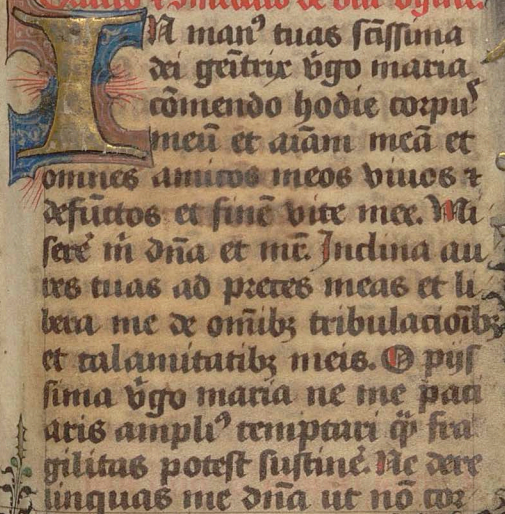 In man⁹ tuas sc̄issima
dei gēitrix v̄go maria
cōmendo hodie corpus
meū et aīam meā et
omnes amicos meos viuos ⁊
defūctos et finē vite mee. Mi
sere᷑ m̄ dn̄a et mr̄. Inclina au
res tuas ad preces meas et li
bera me de om̄ibꝫ tribulacioībꝫ
et calamitatibꝫ meis. O pijs
sima v̄go maria ne me paci
aris ampli⁹ temptari qͣ̄ fra
gilitas potest sustine᷑. Ne dere
linquas me dn̄a ut nō cor